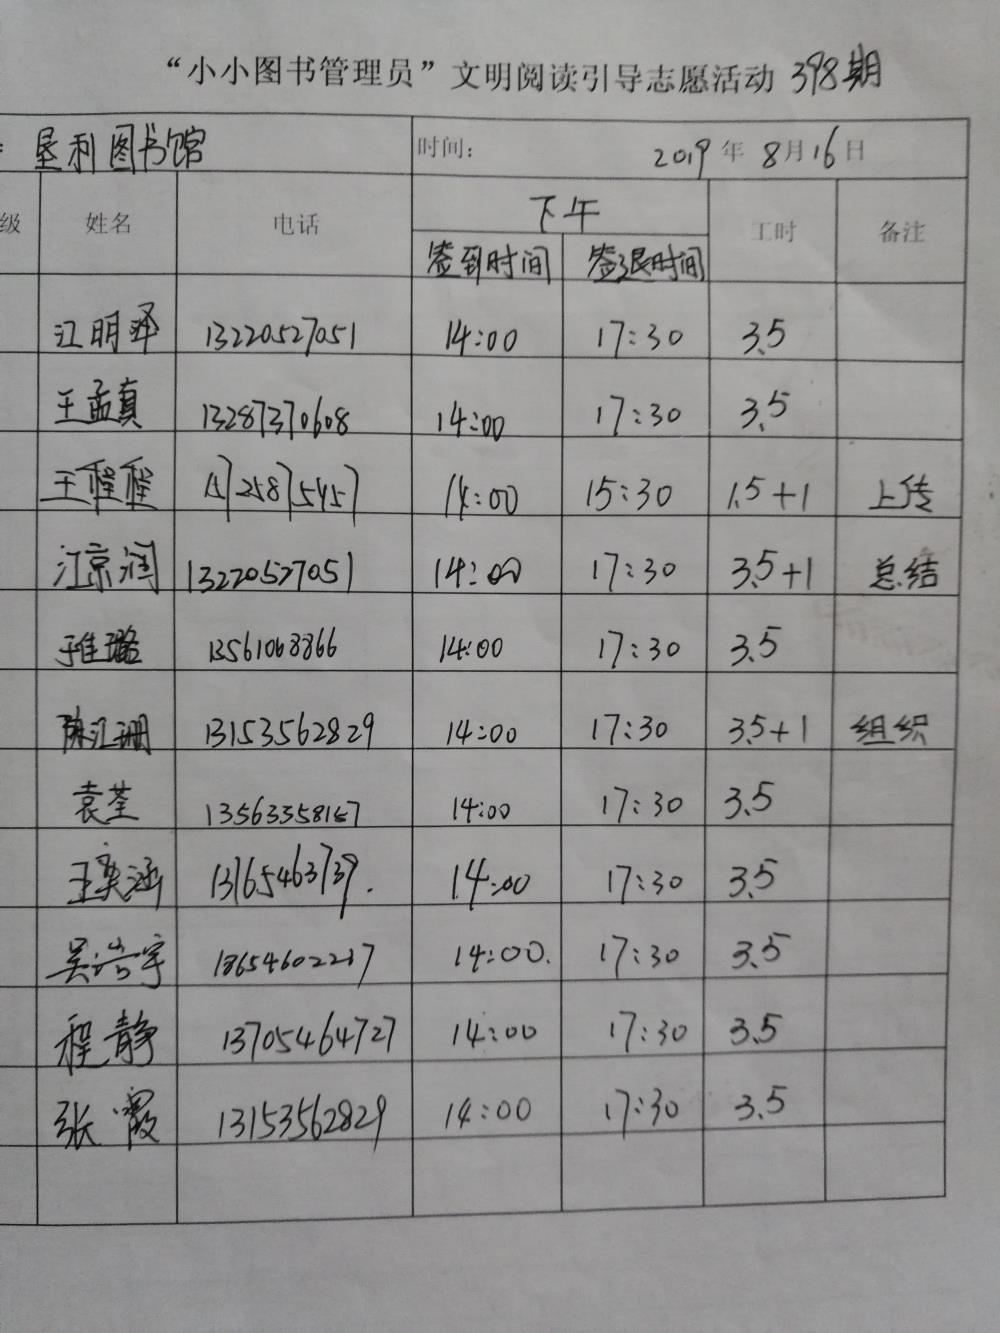 “小小图书管理员”文明阅读引导志愿活动 398期
: 垦利图书馆 时间: 2019年8月16日
级 姓名 电话 下午 工时 备注
签到时间 签退时间
江明泽 13220527051 14:00 17:30 3.5
王孟真 13287370608 14:00 17:30 3.5
王程程 15725875457 14:00 15:30 1.5+1 上传
江京润 13220527051 14:00 17:30 3.5+1 总结
于佳璐 13561068866 14:00 17:30 3.5
陈汇珊 13153562829 14:00 17:30 3.5+1 组织
袁荃 14:00 17:30 3.5
王奕涵 13165463739. 14:00 17:30 3.5
吴浩宇 14:00. 17:30 3.5
程静 13705464727 14:00 17:30 3.5
张霞 13153562829 14:00 17:30 3.5